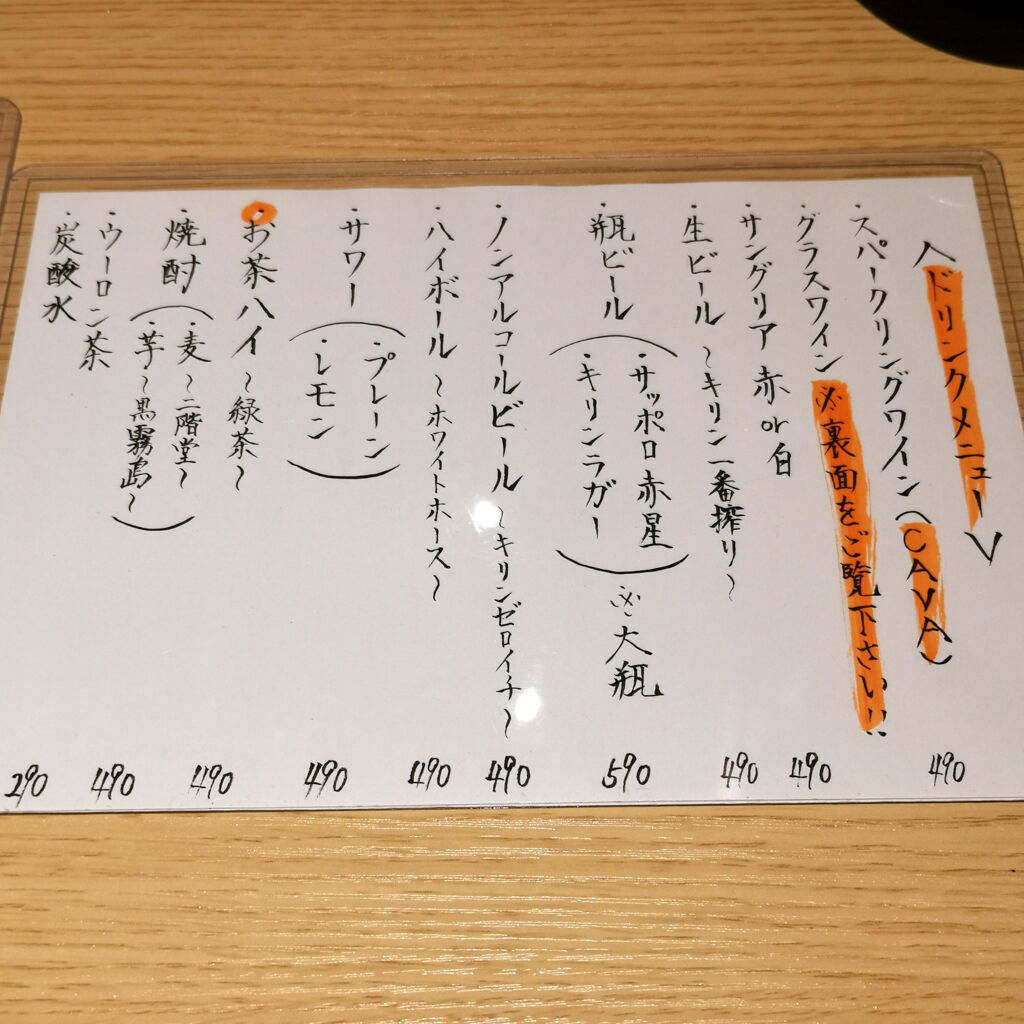 〈ドリンクメニュー〉
・スパークリングワイン（CAVA） 490
・グラスワイン ※裏面をご覧下さい!!
・サングリア 赤 or 白 490
・生ビール 〜キリン一番搾り〜 490
・瓶ビール（・サッポロ赤星
・キリンラガー）※大瓶 590
・ノンアルコールビール 〜キリンゼロイチ〜 490
・ハイボール 〜ホワイトホース〜 490
・サワー（・プレーン
・レモン） 490
・お茶ハイ 〜緑茶〜
・焼酎（・麦〜二階堂〜
・芋〜黒霧島〜） 490
・ウーロン茶 490
・炭酸水 290